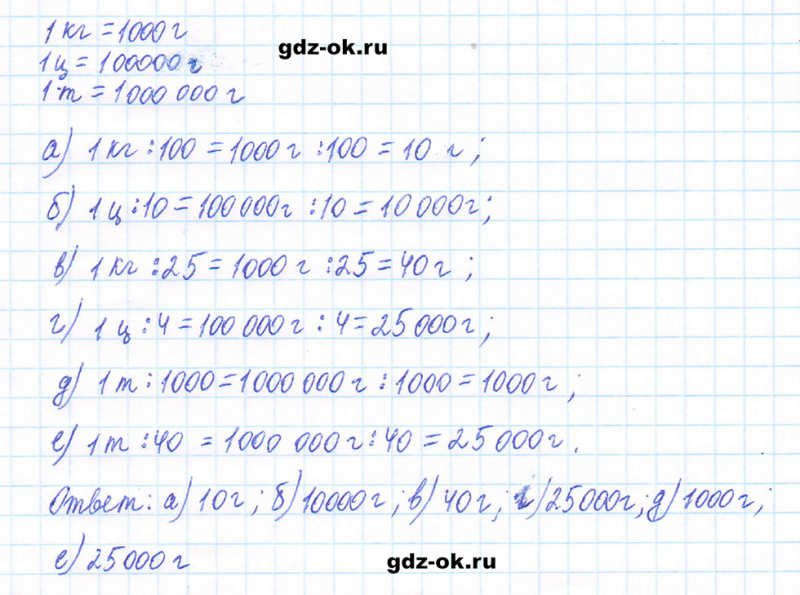 1 кг = 1000 г
gdz-ok.ru
1 ц = 100000 г
1 т = 1000 000 г
а) 1 кг : 100 = 1000 г : 100 = 10 г ;
б) 1 ц : 10 = 100 000 г : 10 = 10 000 г ;
в) 1 кг : 25 = 1000 г : 25 = 40 г ;
г) 1 ц : 4 = 100 000 г : 4 = 25 000 г ;
д) 1 т : 1000 = 1000 000 г : 1000 = 1000 г ;
е) 1 т : 40 = 1000 000 г : 40 = 25 000 г .
Ответ: а) 10 г ; б) 10000 г ; в) 40 г ; г) 25000 г ; д) 1000 г ;
е) 25 000 г
gdz-ok.ru